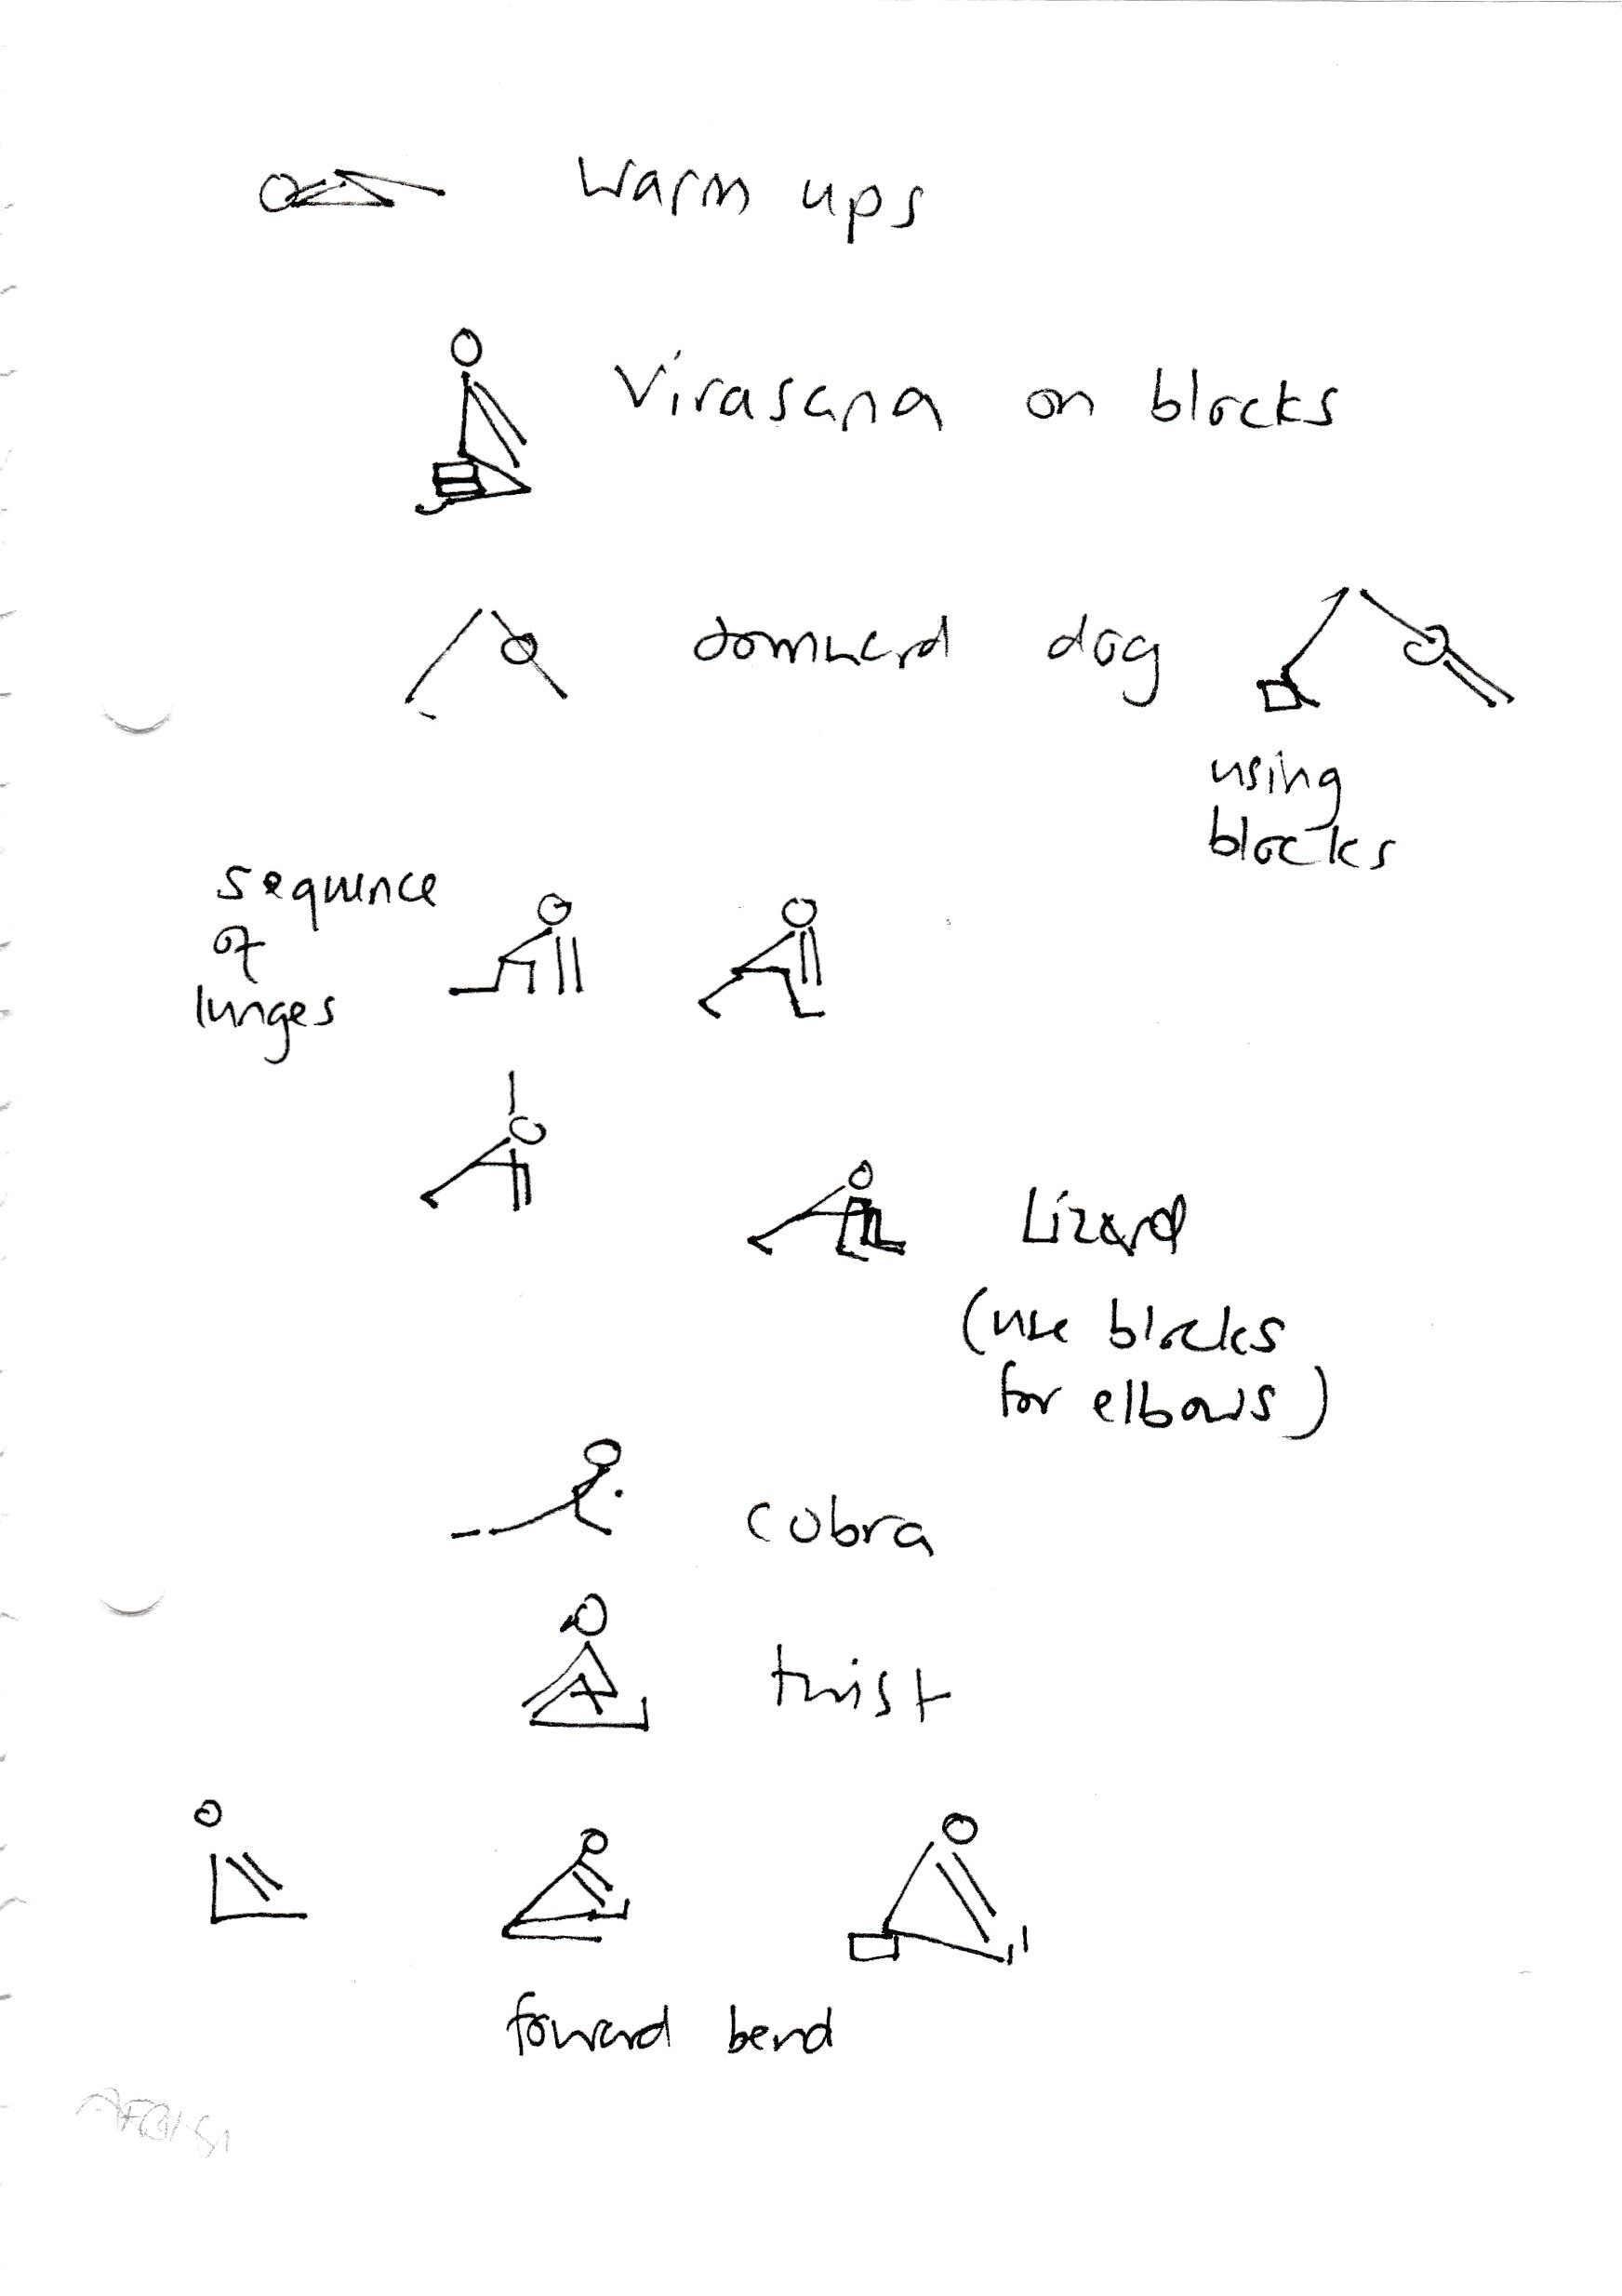 Warm ups
Virasana on blocks
downward dog
using
blocks
sequence
of
lunges
Lizard
(use blocks
for elbows)
cobra
twist
forward bend